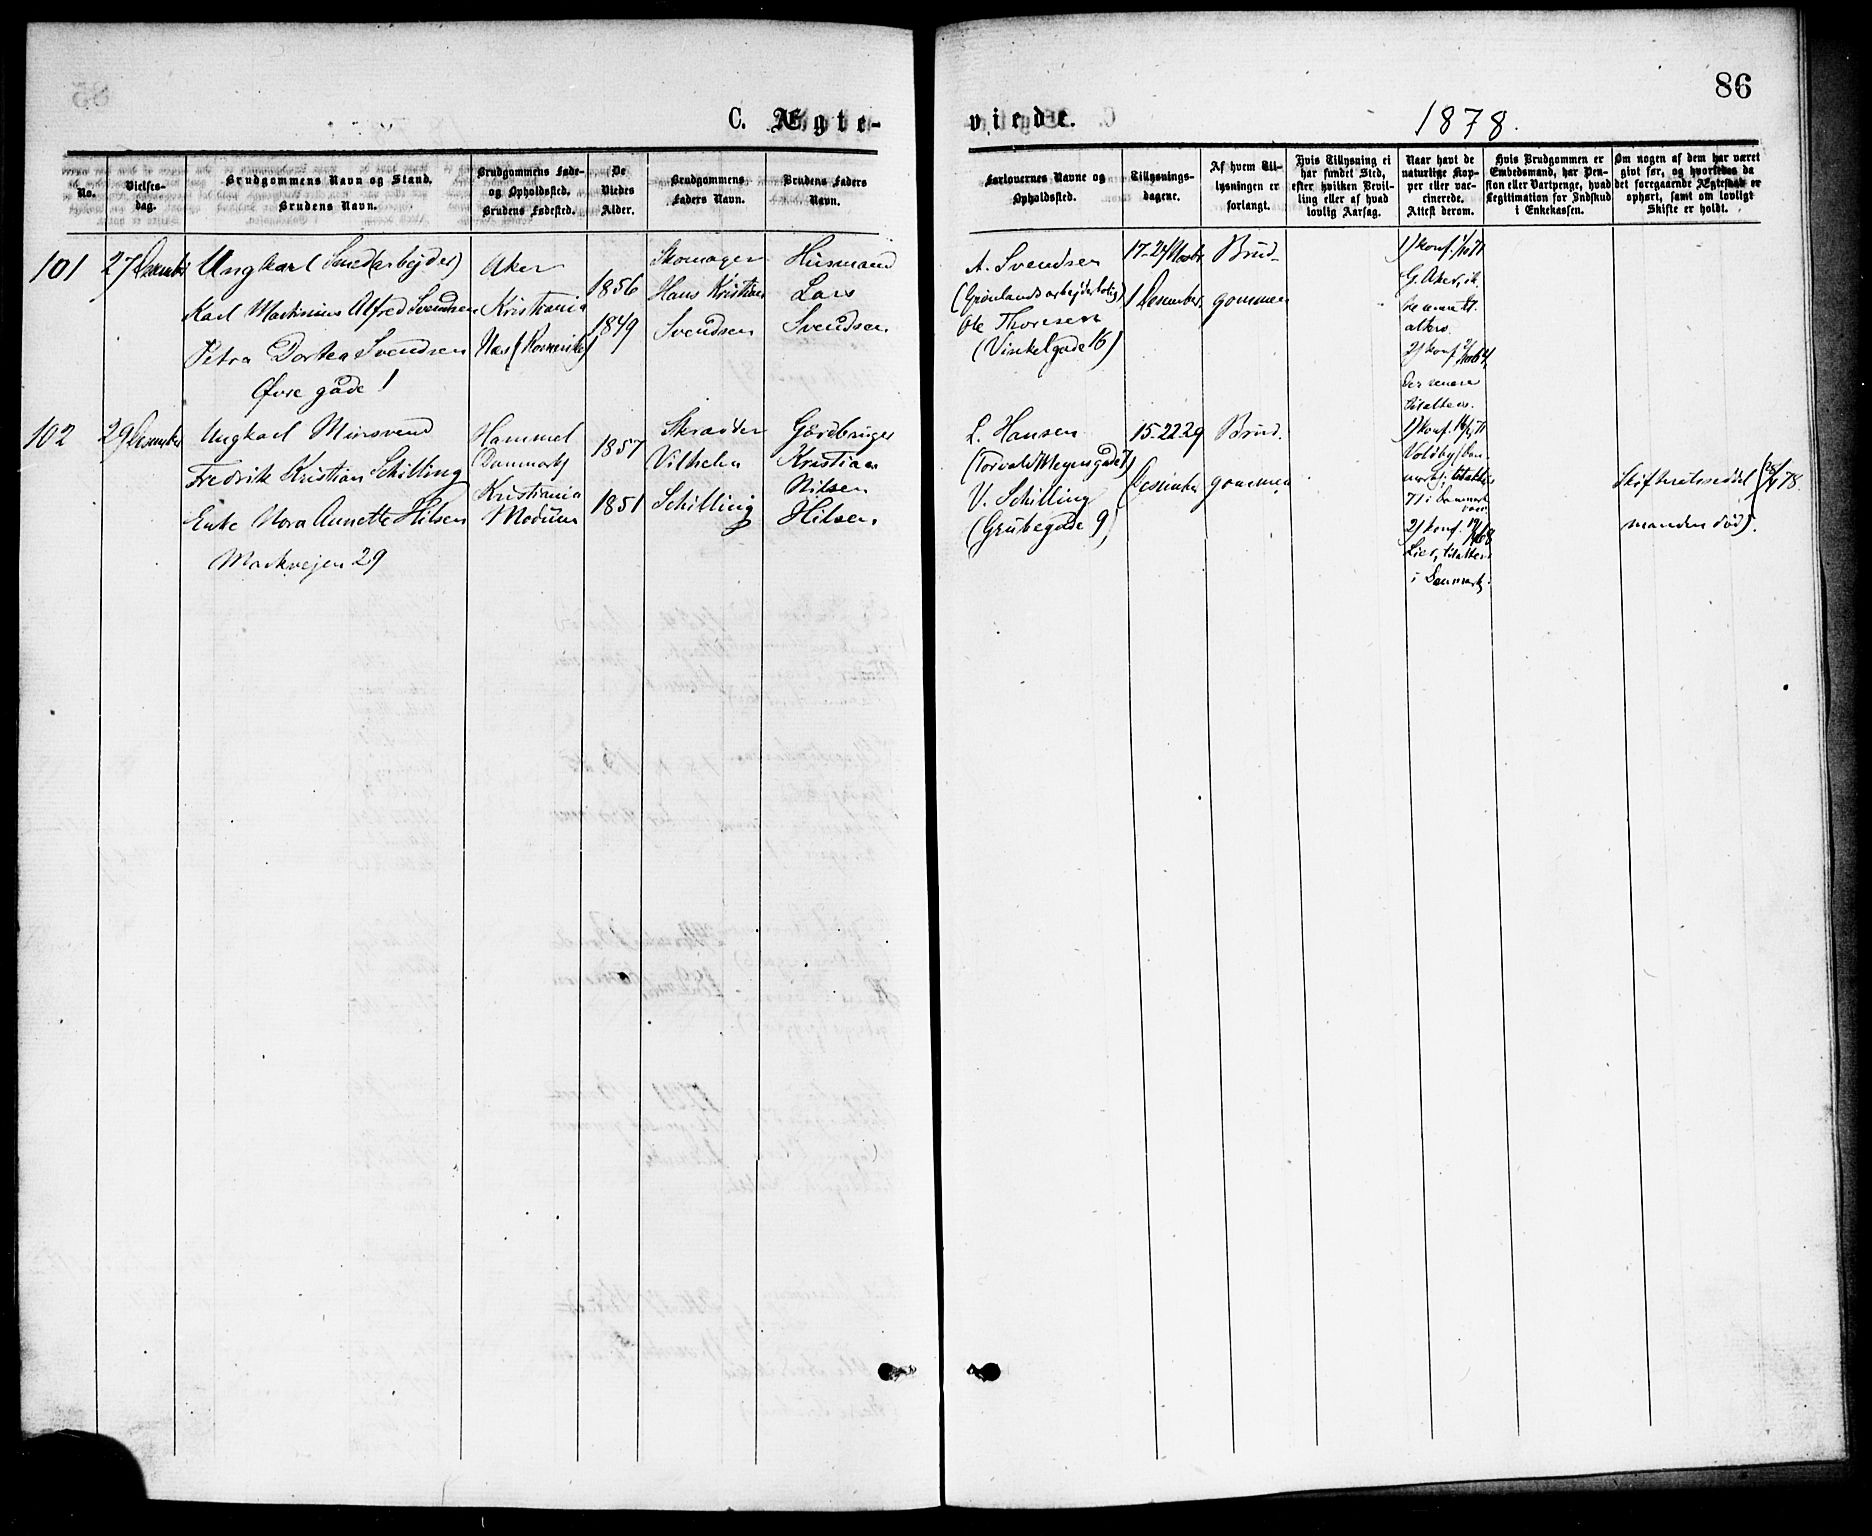 86
C. Ægte-
viede.
1878.
No.
Vielses-
dag.
Brudgommens Navn og Stand.
Brudens Navn.
Brudgommens Føde-
og Opholdssted.
Brudens Fødested.
De
Viedes
Alder.
Brudgommens
Faders Navn.
Brudens Faders
Navn.
Forlovernes Navne og
Opholdssted.
Tillysnings-
dagene.
Af hvem Til-
lysningen er
forlangt.
Hvis Tillysning ei
har fundet Sted,
efter hvilken Bevil-
ling eller af hvad
lovlig Aarsag.
Naar havt de
naturlige Kop-
per eller vac-
cinerede.
Attest derom.
Hvis Brudgommen er
Embedsmand, har Pen-
sion eller Vartpenge, hvad
Legitimation for Indskud
i Enkekassen.
Om nogen af dem har været
gift før, og hvorledes da
det foregaaende Ægteskab er
ophørt, samt om lovligt
Skifte er holdt.
101
27 December
Ungkarl
Karl Martinius Alfred Svendsen
Petra Dortea Svendsen
Øvre gade 1
Aker
Kristiania
Næs (Romerike)
1856
1849
Skomager
Hans Kristian
Svendsen
Husmand
Lars
Svendsen
A. Svendsen
(Grønlands arbejderbolig)
Ole Thoresen
(Vinkelgade 16)
17-24 Novbr.
1 Desember
Brud-
gommen
1) konf.
G. Aker,
2) konf.
102
29 Desember
Ungkarl Minsvend
Fredrik Kristian Schilling
Enke Nora Annette Hilsen
Markvejen 29
Hammel
Danmark
Kristiania
Modum
1857
1851
Skrædder
Vilhelm
Schilling
Gårdbruger
Kristian
Nilsen
Hilsen
L. Hansen
(Torvald Meyersgade 7)
V. Schilling
(Grubegade 9)
15-22 29
Desember
Brud-
gommen
1) konf.
Voldby, Dan-
mark,
71 i Danmark
2) konf.
Lier,
i Danmark.
Skifteretsseddel
manden død).